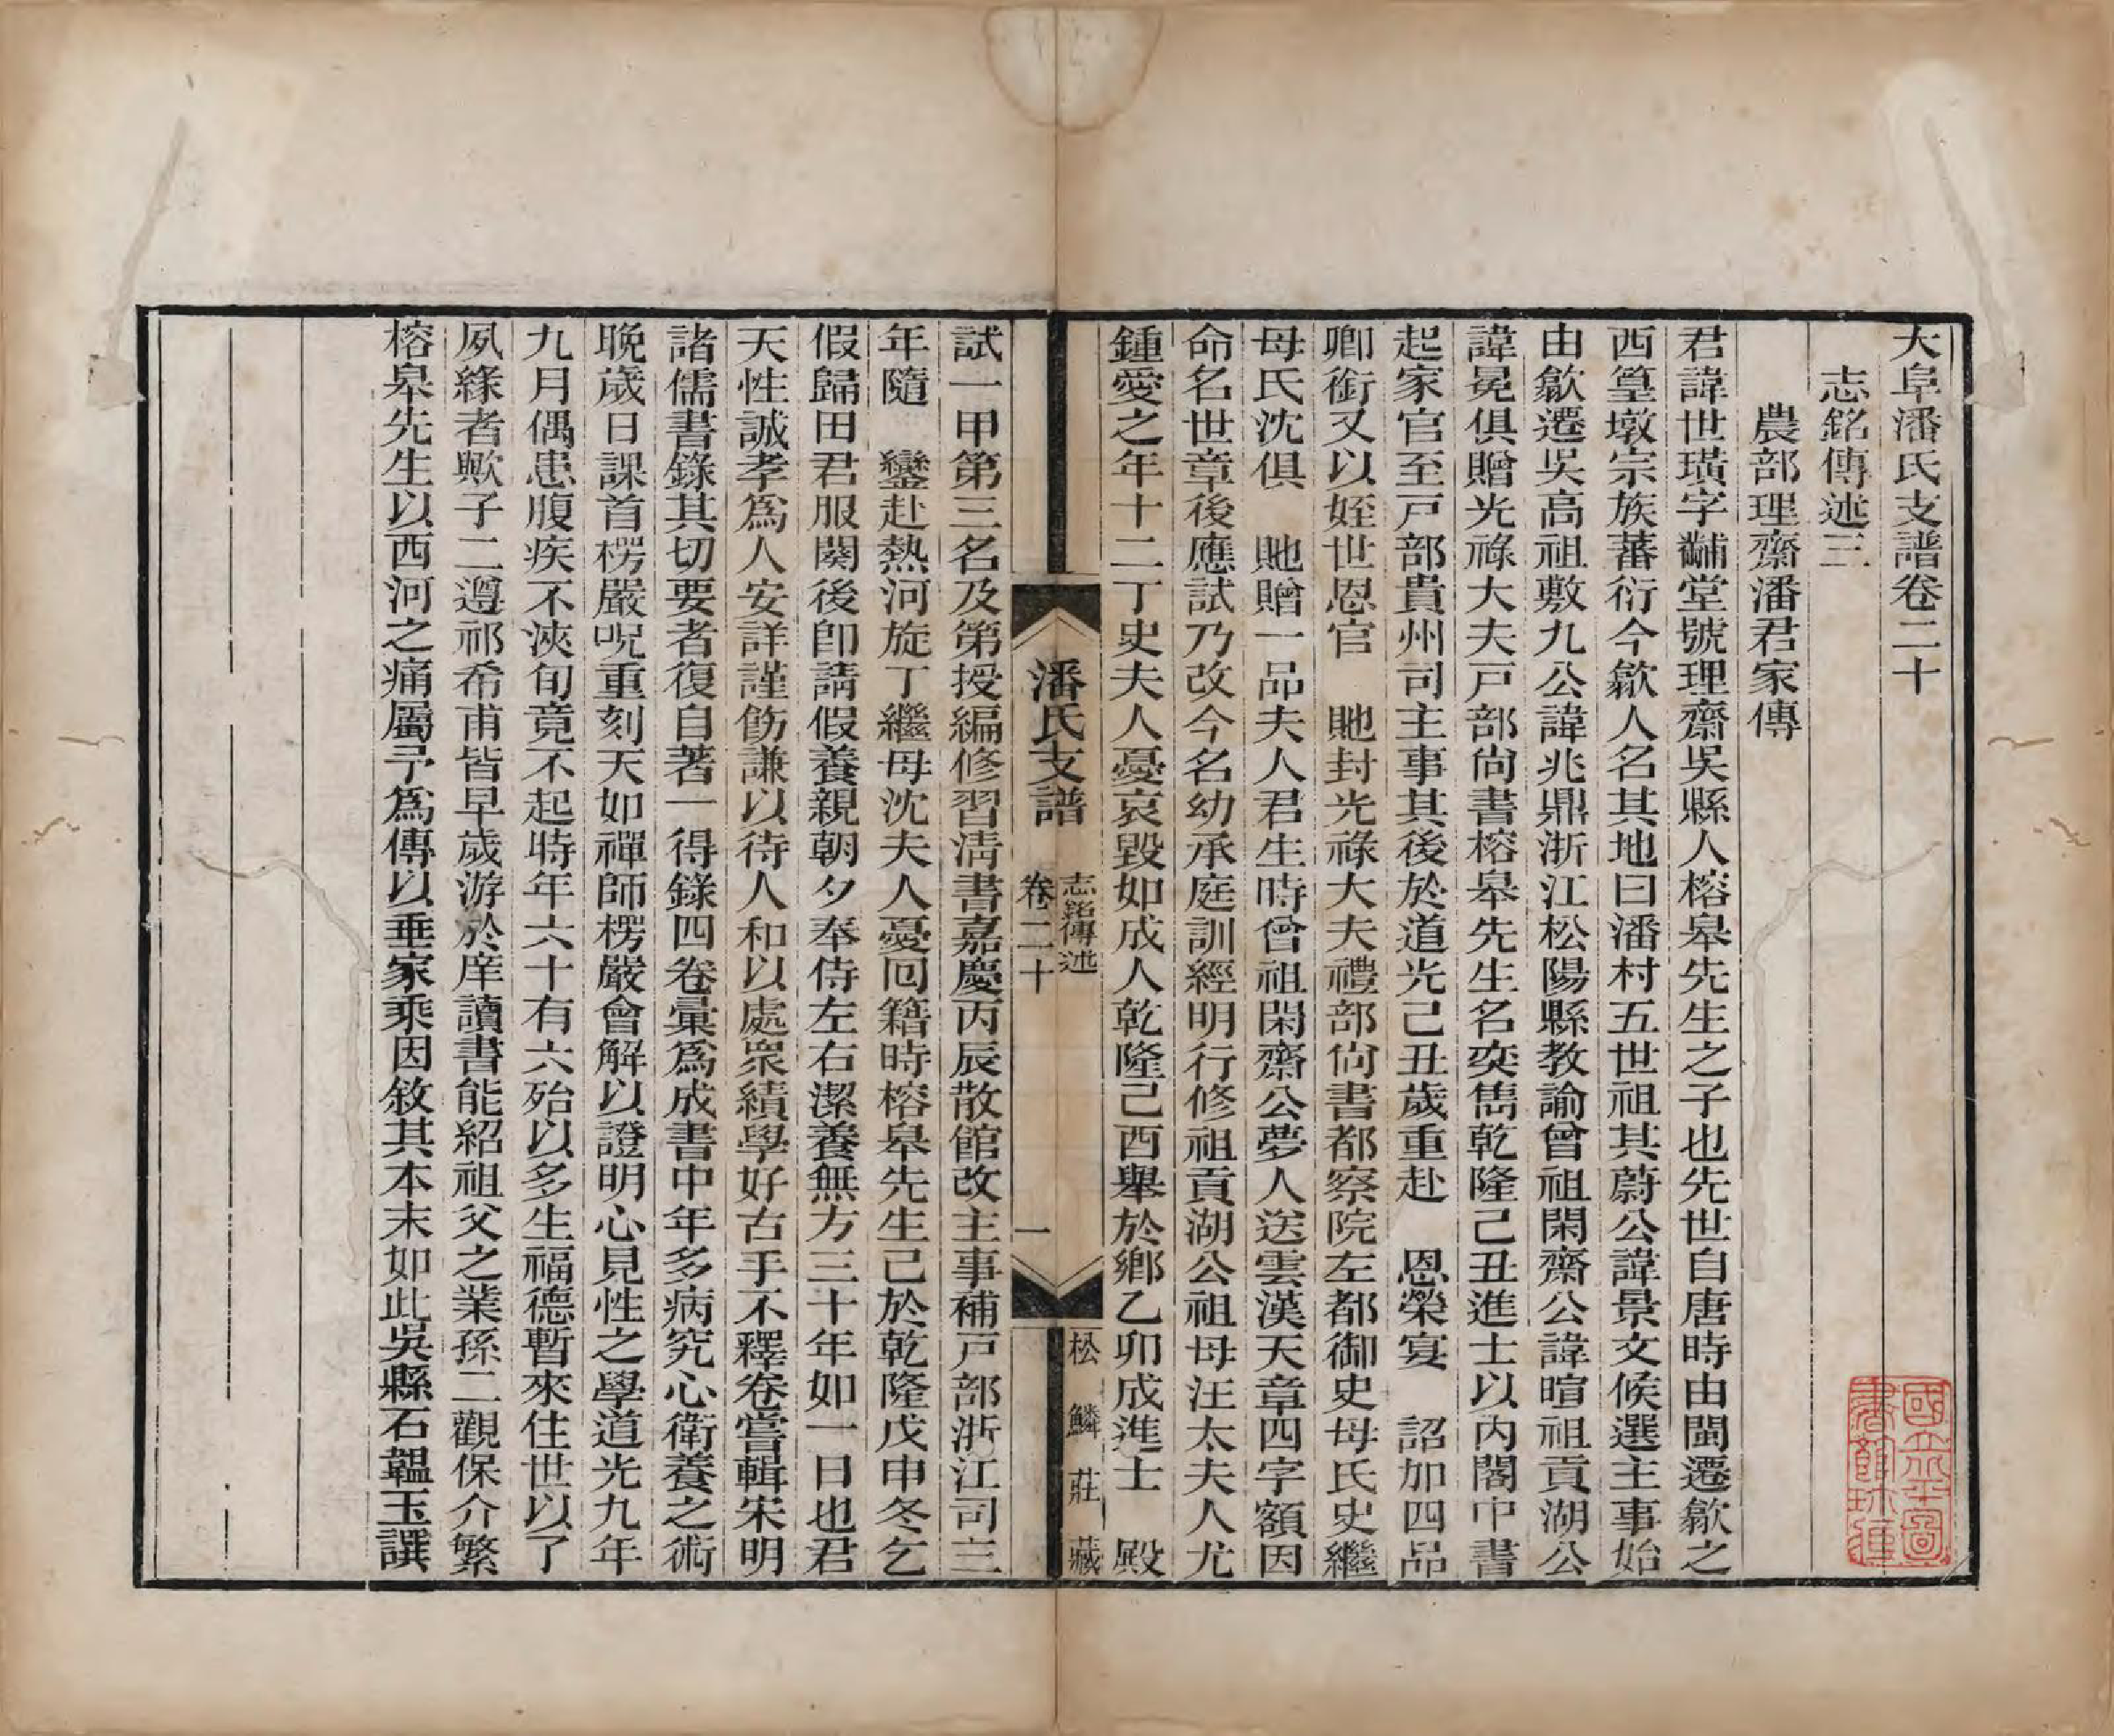 大阜潘氏支譜卷二十
志銘傳述三
農部理齋潘君家傳
君諱世璜字黼堂號理齋吳縣人榕皋先生之子也先世自唐時由閩遷歙之
西篁墩宗族蕃衍今歙人名其地曰潘村五世祖其蔚公諱景文候選主事始
由歙遷吳高祖敷九公諱兆鼎浙江松陽縣教諭曾祖閑齋公諱暄祖貢湖公
諱冕俱贈光祿大夫戸部尚書榕皋先生名奕雋乾隆己丑進士以內閣中書
起家官至戸部貴州司主事其後於道光己丑歲重赴　恩榮宴　詔加四品
卿銜又以姪世恩官　貤封光祿大夫禮部尚書都察院左都御史母氏史繼
母氏沈俱　貤贈一品夫人君生時曾祖閑齋公夢人送雲漢天章四字額因
命名世章後應試乃改今名幼承庭訓經明行修祖貢湖公祖母汪太夫人尤
鍾愛之年十二丁史夫人憂哀毀如成人乾隆己酉舉於鄉乙卯成進士　殿
潘氏支譜　卷二十　志銘傳述　一　松鱗莊藏
試一甲第三名及第授編修習淸書嘉慶丙辰散館改主事補戸部浙江司三
年隨　鑾赴熱河旋丁繼母沈夫人憂回籍時榕皋先生已於乾隆戊申冬乞
假歸田君服闋後卽請假養親朝夕奉侍左右潔養無方三十年如一日也君
天性誠孝爲人安詳謹飭謙以待人和以處眾績學好古手不釋卷嘗輯宋明
諸儒書錄其切要者復自著一得錄四卷彙爲成書中年多病究心衛養之術
晚歲日課首楞嚴呪重刻天如禪師楞嚴會解以證明心見性之學道光九年
九月偶患腹疾不浹旬竟不起時年六十有六殆以多生福德暫來住世以了
夙緣者歟子二遵祁希甫皆早歲游於庠讀書能紹祖父之業孫二觀保介繁
榕皋先生以西河之痛屬予爲傳以垂家乘因敘其本末如此吳縣石韞玉譔
國立北平圖書館珍藏